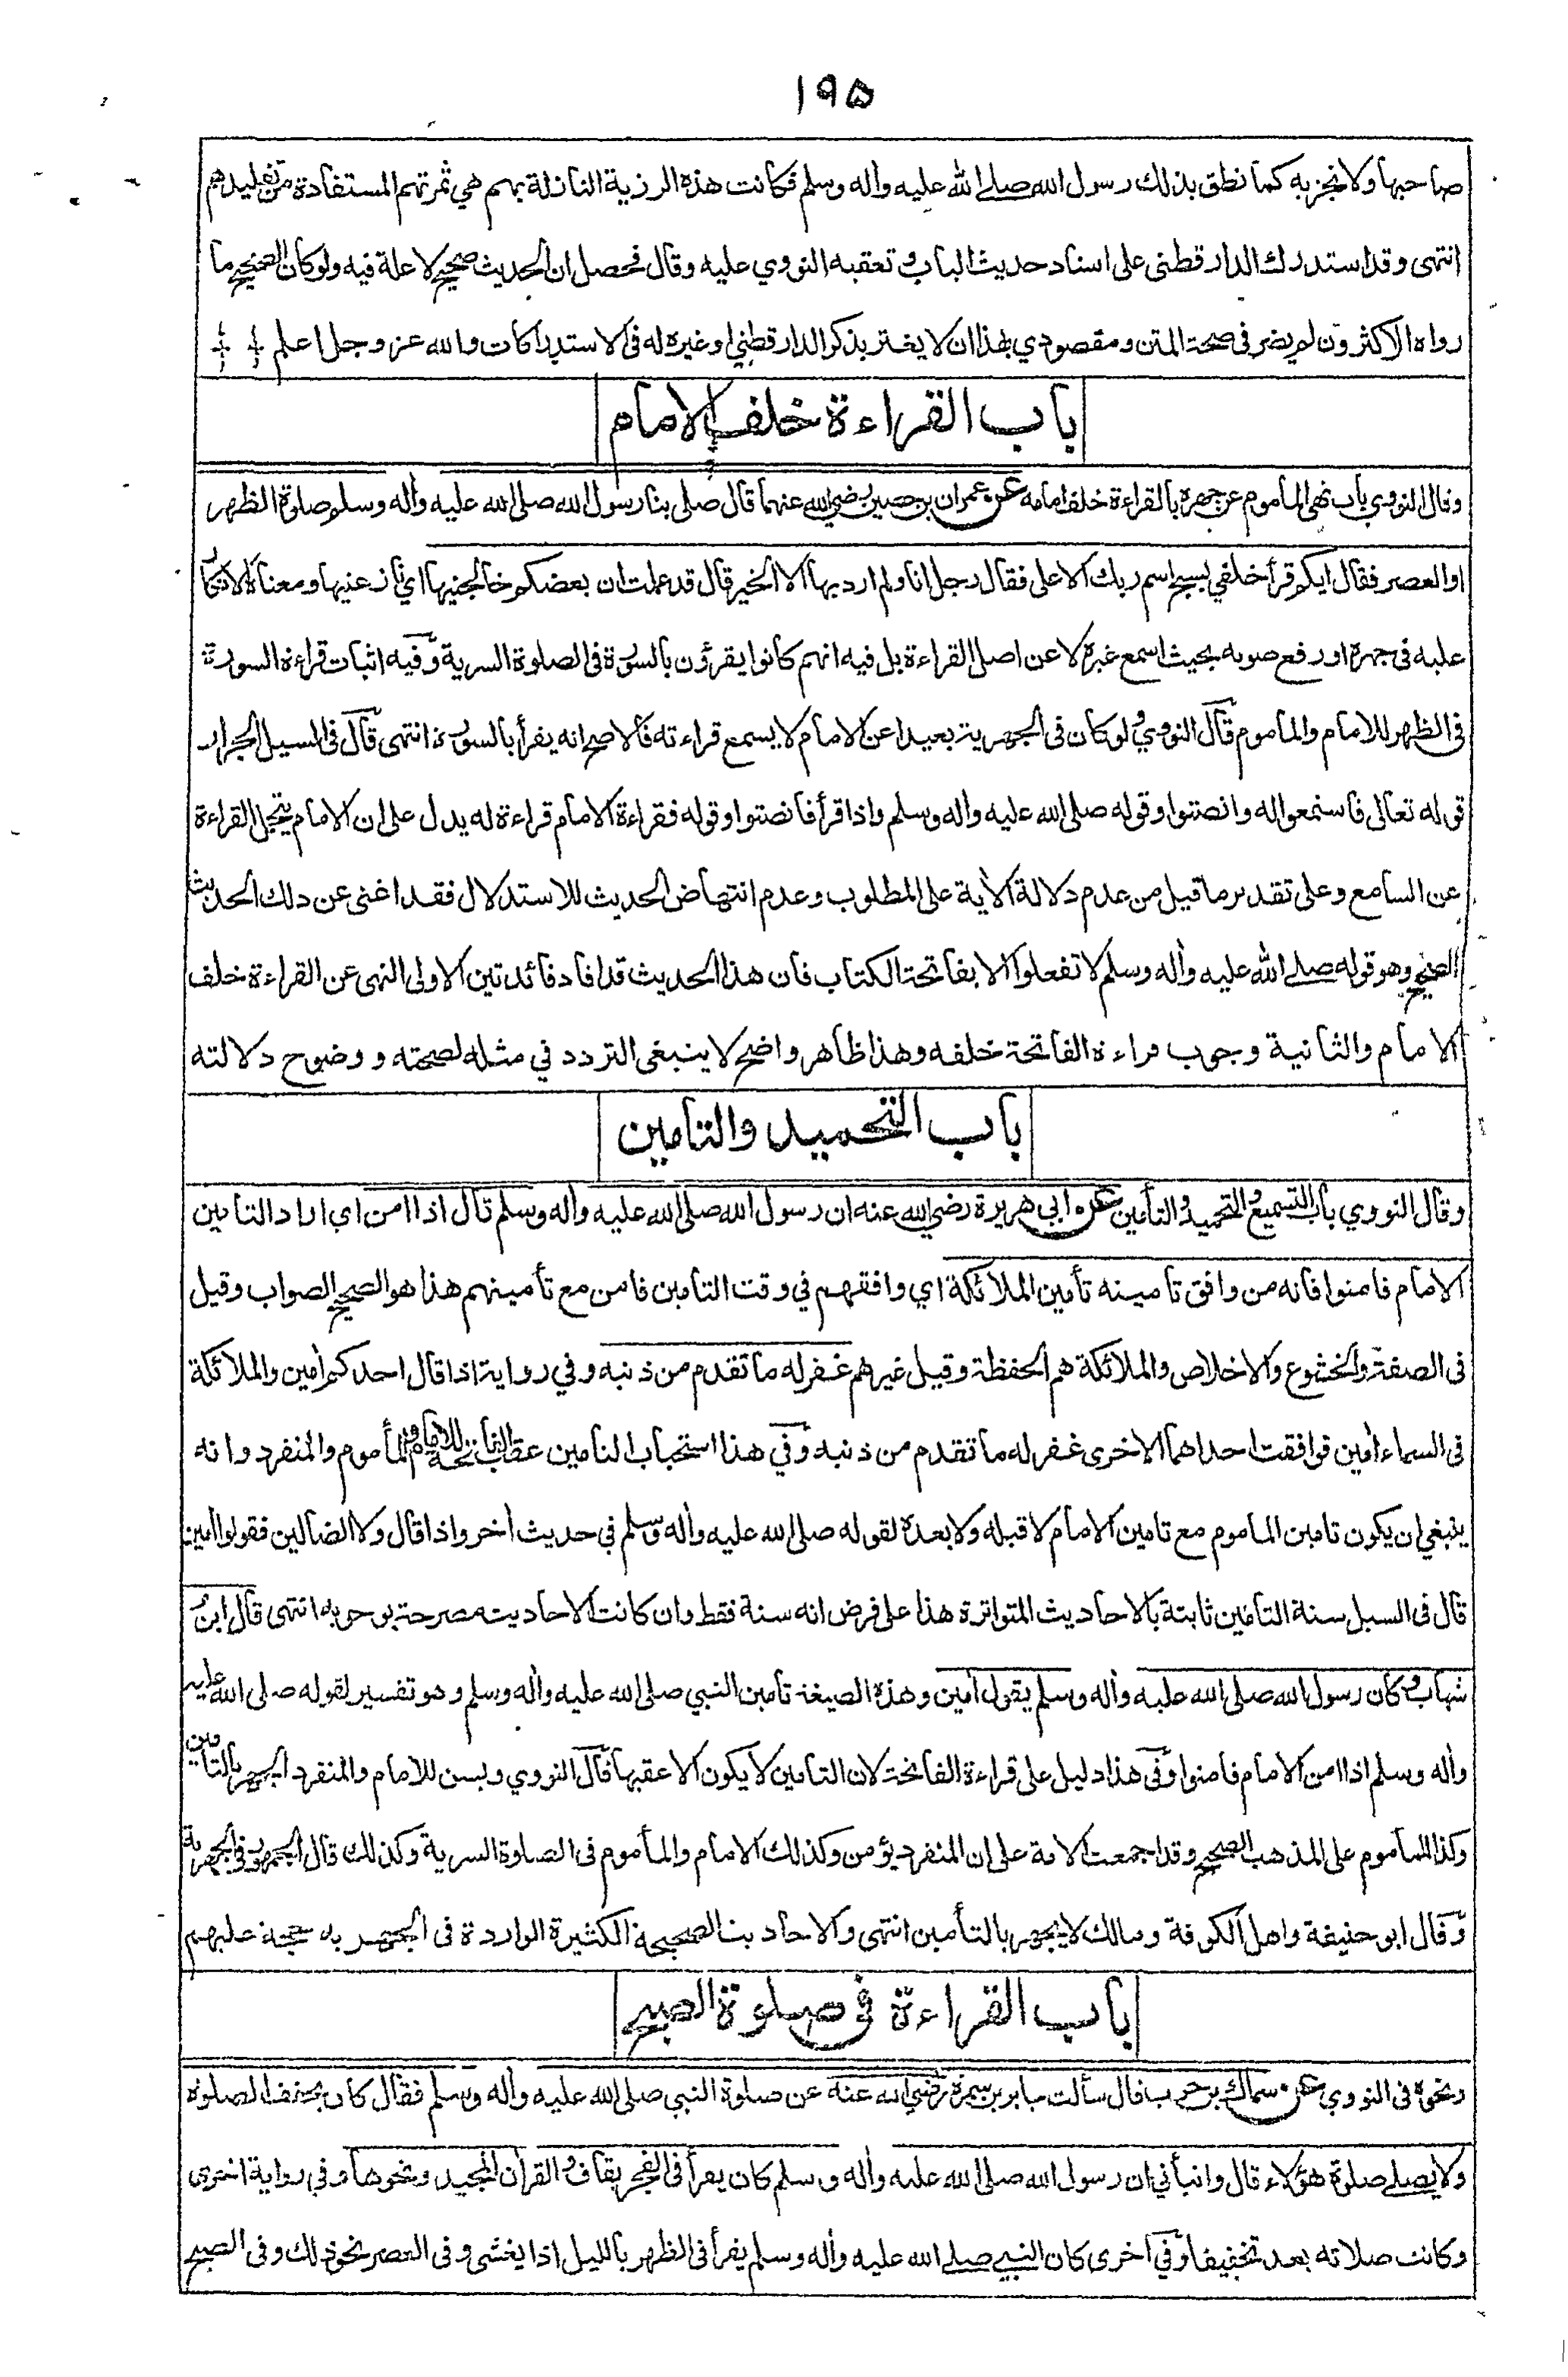 ١٩٥
صاحبها ولا تجزبه كما نطق بذلك رسول الله صلى الله عليه واله وسلم فكانت هذه الرزية النازلة بهم هي ثمرتهم المستفادة من تقليدهم
انتهى وقد استدرك الدارقطنى على اسناد حديث الباب وتعقبه النووي عليه وقال فحصل ان الحديث صحيح لا علة فيه ولو كان الصحيح ما
رواه الاكثرون لم يضر فى صحة المتن ومقصودي بهذا ان لا يغتر بذكر الدارقطني او غيره له فى الاستدراكات والله عز وجل اعلم
باب القراءة خلف الامام
وقال النووي باب نهى المأموم عن جهره بالقراءة خلف امامه عن عمران بن حصين رضي الله عنهما قال صلى بنا رسول الله صلى الله عليه واله وسلم صلوة الظهر
او العصر فقال ايكم قرأ خلفي بسبح اسم ربك الاعلى فقال رجل انا ولم ارد بها الا الخير قال قد علمت ان بعضكم خالجنيها اي نازعنيها ومعناه الانكار
عليه فى جهره او رفع صوته بحيث اسمع غيره لا عن اصل القراءة بل فيه انهم كانوا يقرؤن بالسورة فى الصلوة السرية وفيه اثبات قراءة السورة
فى الظهر للامام والماموم قال النووي ولو كان فى الجهرية بعيدا عن الامام لا يسمع قراءته فالاصح انه يقرأ بالسورة انتهى قال فى السيل الجرار
قوله تعالى فاستمعوا له وانصتوا وقوله صلى الله عليه واله وسلم واذا قرأ فانصتوا وقوله فقراءة الامام قراءة له يدل على ان الامام يتحمل القراءة
عن السامع وعلى تقدير ما قيل من عدم دلالة الأية على المطلوب وعدم انتهاض الحديث للاستدلال فقد اغنى عن ذلك الحديث
الصحيح وهو قوله صلى الله عليه واله وسلم لا تفعلوا الا بفاتحة الكتاب فان هذا الحديث قد افاد فائدتين الاولى النهى عن القراءة خلف
الامام والثانية وجوب قراءة الفاتحة خلفه وهذا ظاهر واضح لا ينبغى التردد في مثله لصحته ووضوح دلالته
باب التحميد والتامين
وقال النووي باب التسميع والتحميد والتأمين عن ابي هريرة رضي الله عنه ان رسول الله صلى الله عليه واله وسلم قال اذا امن اي اراد التامين
الامام فامنوا فانه من وافق تامينه تأمين الملائكة اي وافقهم في وقت التامين فامن مع تأمينهم هذا هو الصحيح الصواب وقيل
فى الصفة والخشوع والاخلاص والملائكة هم الحفظة وقيل غيرهم غفر له ما تقدم من ذنبه وفي رواية اذا قال احدكم امين والملائكة
فى السماء امين فوافقت احداهما الاخرى غفر له ما تقدم من ذنبه وفي هذا استحباب التامين عقب الفاتحة للامام والمأموم والمنفرد وانه
ينبغي ان يكون تامين الماموم مع تامين الامام لا قبله ولا بعده لقوله صلى الله عليه واله وسلم في حديث اخر واذا قال ولا الضالين فقولوا امين
قال فى السيل سنة التامين ثابتة بالاحاديث المتواترة هذا على فرض انه سنة فقط وان كانت الاحاديث مصرحة بوجوبه انتهى قال ابن
شهاب وكان رسول الله صلى الله عليه واله وسلم يقول امين وهذه الصيغة تامين النبي صلى الله عليه واله وسلم وهو تفسير لقوله صلى الله عليه
واله وسلم اذا امن الامام فامنوا وفى هذا دليل على قراءة الفاتحة لان التامين لا يكون الا عقبها قال النووي ويسن للامام والمنفرد الجهر بالتامين
وكذا المأموم على المذهب الصحيح وقد اجمعت الامة على ان المنفرد يؤمن وكذلك الامام والمأموم فى الصلوة السرية وكذلك قال الجمهور فى الجهرية
وقال ابو حنيفة واهل الكوفة ومالك لا يجهر بالتأمين انتهى والاحاديث الصحيحة الكثيرة الواردة فى الجهر به حجة عليهم
باب القراءة فى صلوة الصبح
ونحوه فى النووي عن سماك بن حرب قال سألت جابر بن سمرة رضي الله عنه عن صلوة النبي صلى الله عليه واله وسلم فقال كان يخفف الصلوة
ولا يصلى صلوة هؤلاء قال وانبأني ان رسول الله صلى الله عليه واله وسلم كان يقرأ فى الفجر بقاف والقران المجيد ونحوها وفي رواية اخرى
وكانت صلاته بعد تخفيفا وفي اخرى كان النبي صلى الله عليه واله وسلم يقرأ فى الظهر بالليل اذا يغشى وفى العصر نحو ذلك وفى الصبح